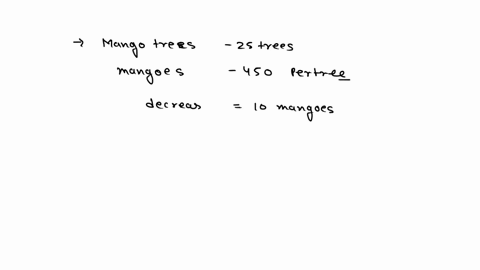 → Mango trees - 25 trees
mangoes - 450 Pertree
decreas = 10 mangoes